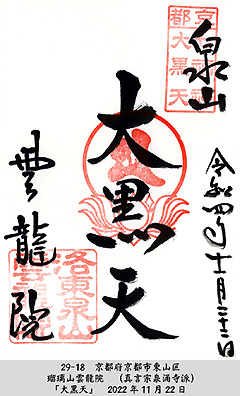 泉山
大黒天
雲龍院
令和四年十一月二十二日
大黒天
洛東泉山
29-18　京都府京都市東山区
瑠璃山雲龍院　（真言宗泉涌寺派）
「大黒天」　2022年11月22日